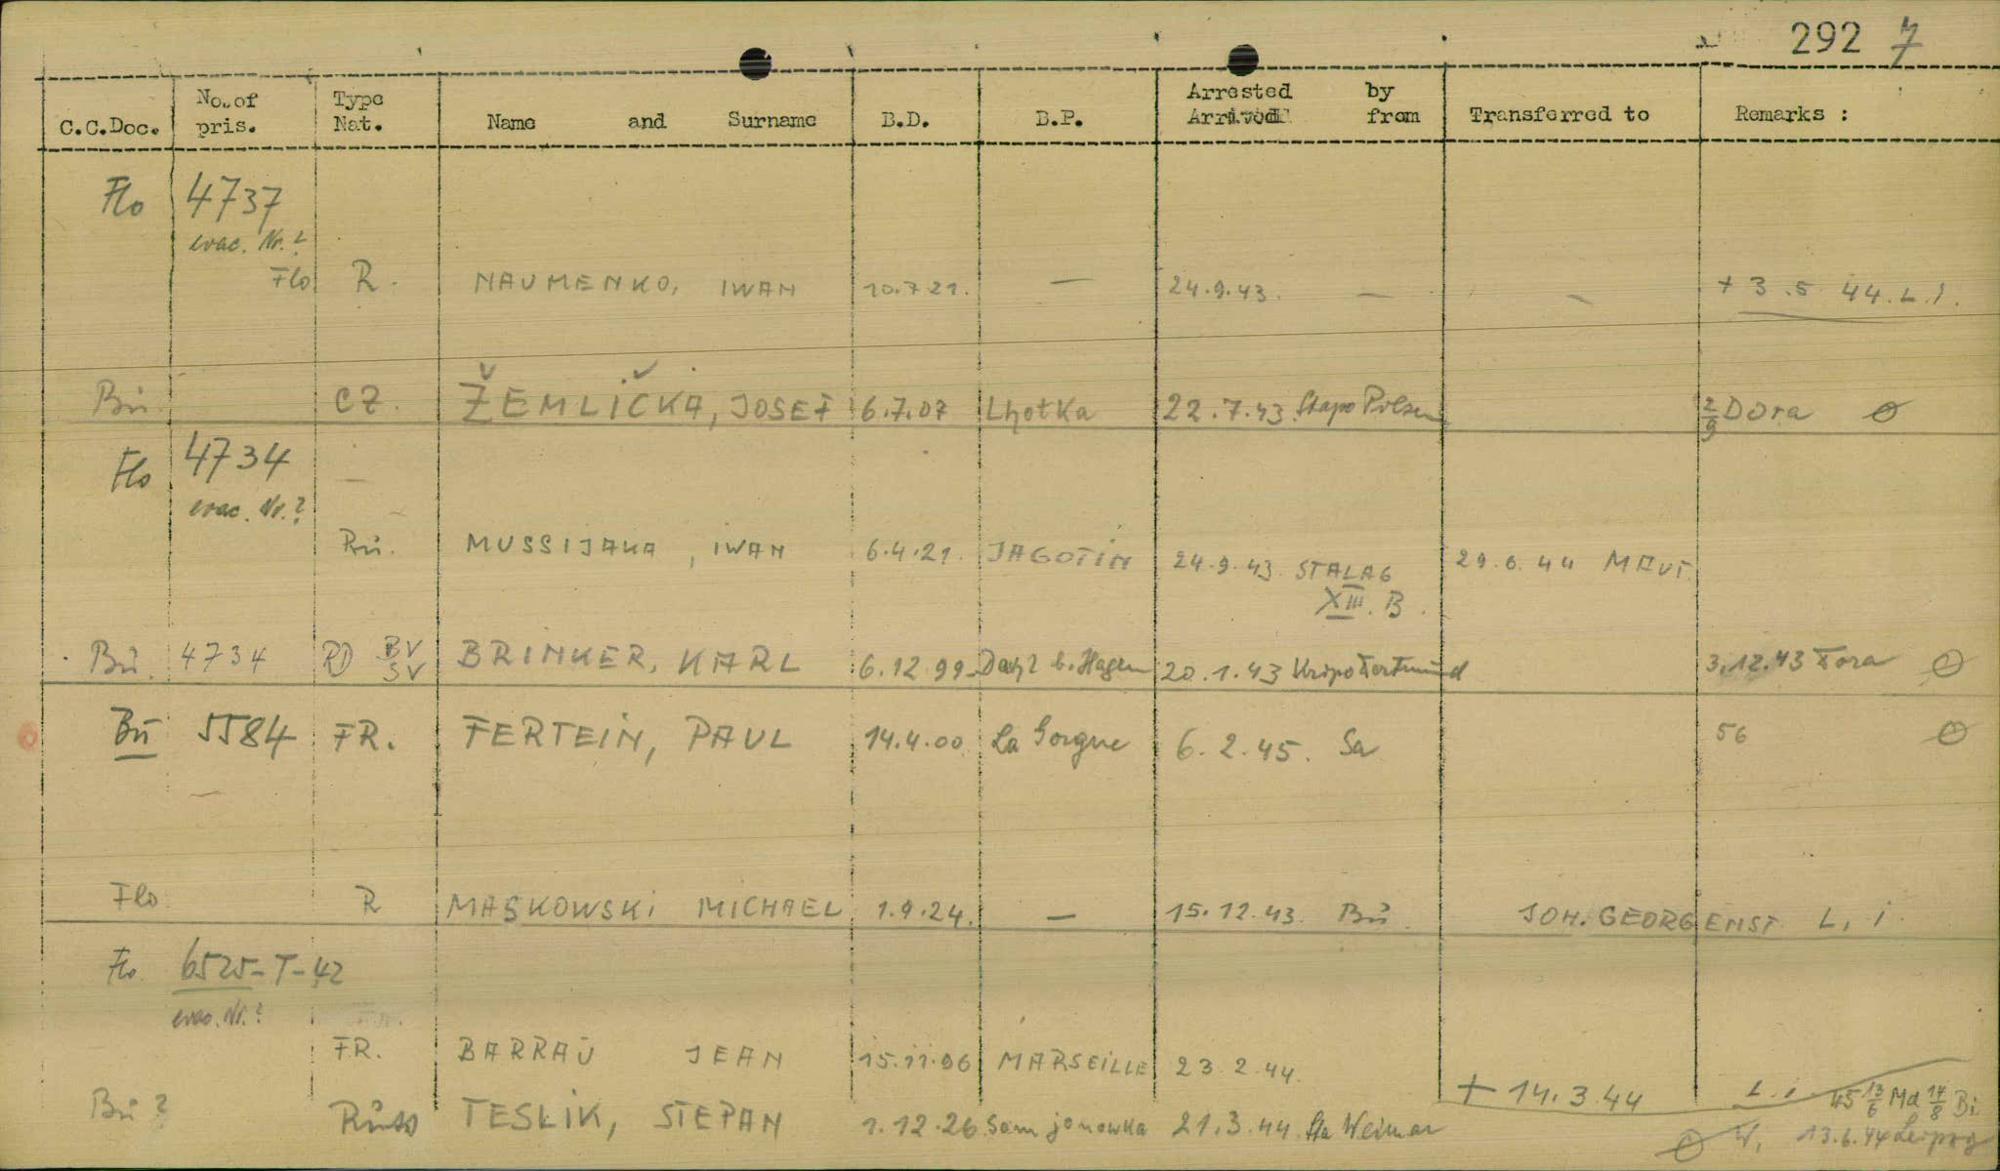 292 7
C.C.Doc. No. of pris. Type Nat. Name and Surname B.D. B.P. Arrested by Arrived from Transferred to Remarks :
Flo 4737
evac. Nr.?
Flo R. NAUMENKO, IWAN 10.7.21. — 24.9.43. — — + 3.5 44. L.i.
Bu. CZ. ŽEMLIČKA, JOSEF 6.7.07 Lhotka 22.7.43 Stapo Pilsen 2/9 Dora
Flo 4734 —
evac. Nr.?
Ru. MUSSIJAKA, IWAN 6.4.21. JAGOTIN 24.9.43 STALAG 29.6.44 MAUT.
XIII. B.
Bu. 4734 RD BV SV BRINKER, KARL 6.12.99 b. Hagen 20.1.43 Kripo Dortmund 3.12.43 Dora
Bu 5584 FR. FERTEIN, PAUL 14.4.00 La Gorgue 6.2.45. Sa 56
Flo R MASKOWSKI MICHAEL 1.9.24. — 15.12.43. Bu JOH. GEORGENST L, i.
Flo. 6525-T-42
evac. Nr.?
FR. BARRAU JEAN 15.11.06 MARSEILLE 23.2.44. + 14.3.44 L.i
45 13/6 Md 14/8 Bi
Bu ? Russ TESLIK, STEPAN 1.12.26 Samjonowka 21.3.44 Sta Weimar 13.6.44 Leipzig